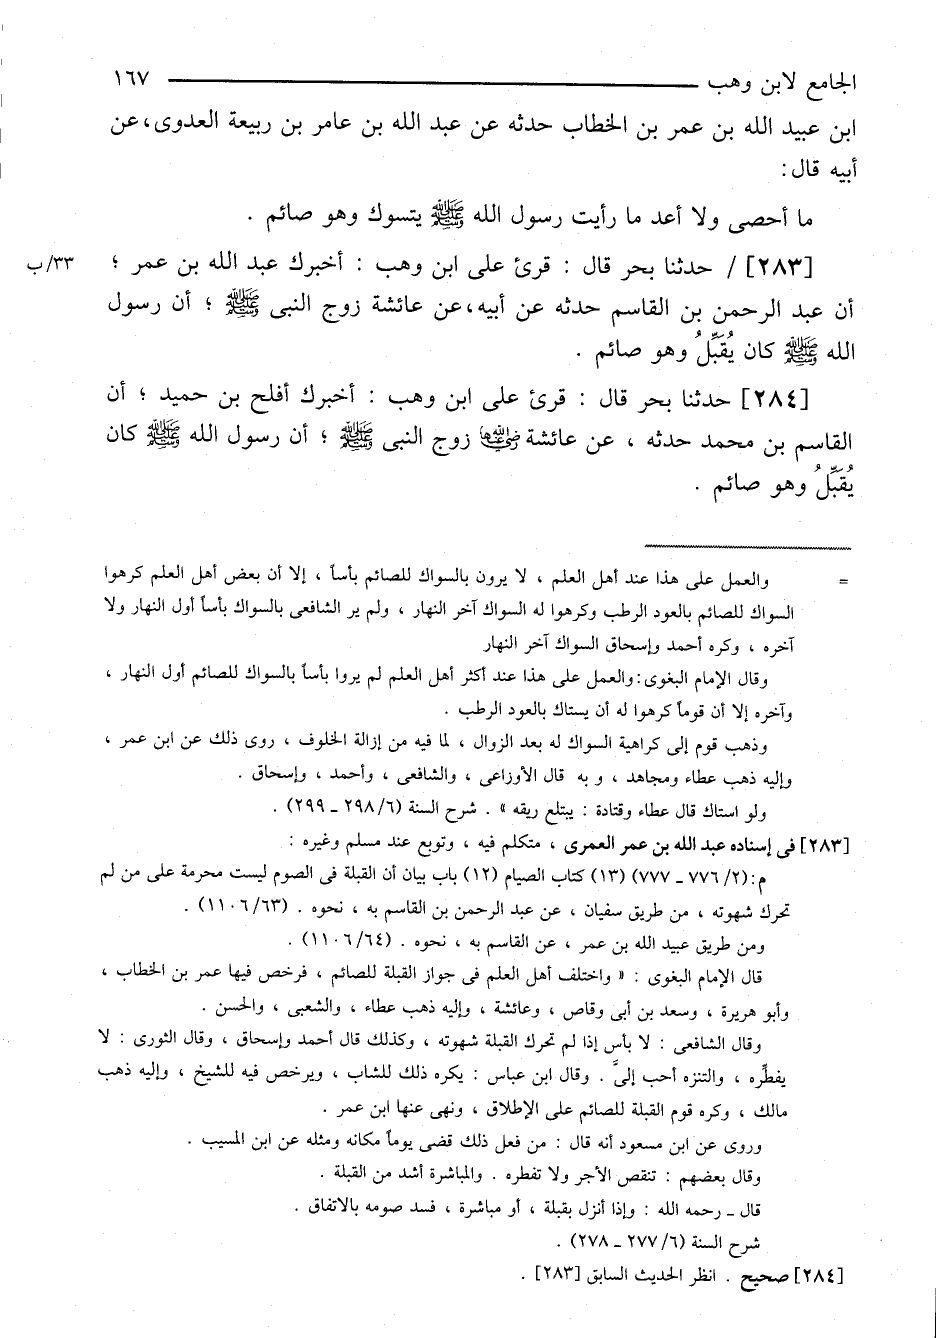 الجامع لابن وهب ١٦٧
ابن عبيد الله بن عمر بن الخطاب حدثه عن عبد الله بن عامر بن ربيعة العدوى، عن
أبيه قال:
ما أحصى ولا أعد ما رأيت رسول الله ﷺ يتسوك وهو صائم .
[٢٨٣] / حدثنا بحر قال : قرئ على ابن وهب : أخبرك عبد الله بن عمر ؛ ٣٣/ب
أن عبد الرحمن بن القاسم حدثه عن أبيه، عن عائشة زوج النبى ﷺ ؛ أن رسول
الله ﷺ كان يُقَبِّلُ وهو صائم .
[٢٨٤] حدثنا بحر قال : قرئ على ابن وهب : أخبرك أفلح بن حميد ؛ أن
القاسم بن محمد حدثه ، عن عائشة رضي الله عنها زوج النبى ﷺ ؛ أن رسول الله ﷺ كان
يُقَبِّلُ وهو صائم .
= والعمل على هذا عند أهل العلم ، لا يرون بالسواك للصائم بأسًا ، إلا أن بعض أهل العلم كرهوا
السواك للصائم بالعود الرطب وكرهوا له السواك آخر النهار ، ولم ير الشافعى بالسواك بأسًا أول النهار ولا
آخره ، وكره أحمد وإسحاق السواك آخر النهار
وقال الإمام البغوى: والعمل على هذا عند أكثر أهل العلم لم يروا بأسًا بالسواك للصائم أول النهار ،
وآخره إلا أن قومًا كرهوا له أن يستاك بالعود الرطب .
وذهب قوم إلى كراهية السواك له بعد الزوال ، لما فيه من إزالة الخلوف ، روى ذلك عن ابن عمر ،
وإليه ذهب عطاء ومجاهد ، و به قال الأوزاعى ، والشافعى ، وأحمد ، وإسحاق .
ولو استاك قال عطاء وقتادة : يبتلع ريقه » . شرح السنة (٦/ ٢٩٨ ـ ٢٩٩) .
[٢٨٣] فى إسناده عبد الله بن عمر العمرى ، متكلم فيه ، وتوبع عند مسلم وغيره :
م: (٢/ ٧٧٦ ـ ٧٧٧) (١٣) كتاب الصيام (١٢) باب بيان أن القبلة فى الصوم ليست محرمة على من لم
تحرك شهوته ، من طريق سفيان ، عن عبد الرحمن بن القاسم به ، نحوه . (٦٣/ ١١٠٦) .
ومن طريق عبيد الله بن عمر ، عن القاسم به ، نحوه . (٦٤/ ١١٠٦) .
قال الإمام البغوى : « واختلف أهل العلم فى جواز القبلة للصائم ، فرخص فيها عمر بن الخطاب ،
وأبو هريرة ، وسعد بن أبى وقاص ، وعائشة ، وإليه ذهب عطاء ، والشعبى ، والحسن .
وقال الشافعى : لا بأس إذا لم تحرك القبلة شهوته ، وكذلك قال أحمد وإسحاق ، وقال الثورى : لا
يفطِّره ، والتنزه أحب إلىَّ . وقال ابن عباس : يكره ذلك للشاب ، ويرخص فيه للشيخ ، وإليه ذهب
مالك ، وكره قوم القبلة للصائم على الإطلاق ، ونهى عنها ابن عمر .
وروى عن ابن مسعود أنه قال : من فعل ذلك قضى يومًا مكانه ومثله عن ابن المسيب .
وقال بعضهم : تنقص الأجر ولا تفطره . والمباشرة أشد من القبلة .
قال ـ رحمه الله : وإذا أنزل بقبلة ، أو مباشرة ، فسد صومه بالاتفاق .
شرح السنة (٦/ ٢٧٧ ـ ٢٧٨) .
[٢٨٤] صحيح . انظر الحديث السابق [٢٨٣] .